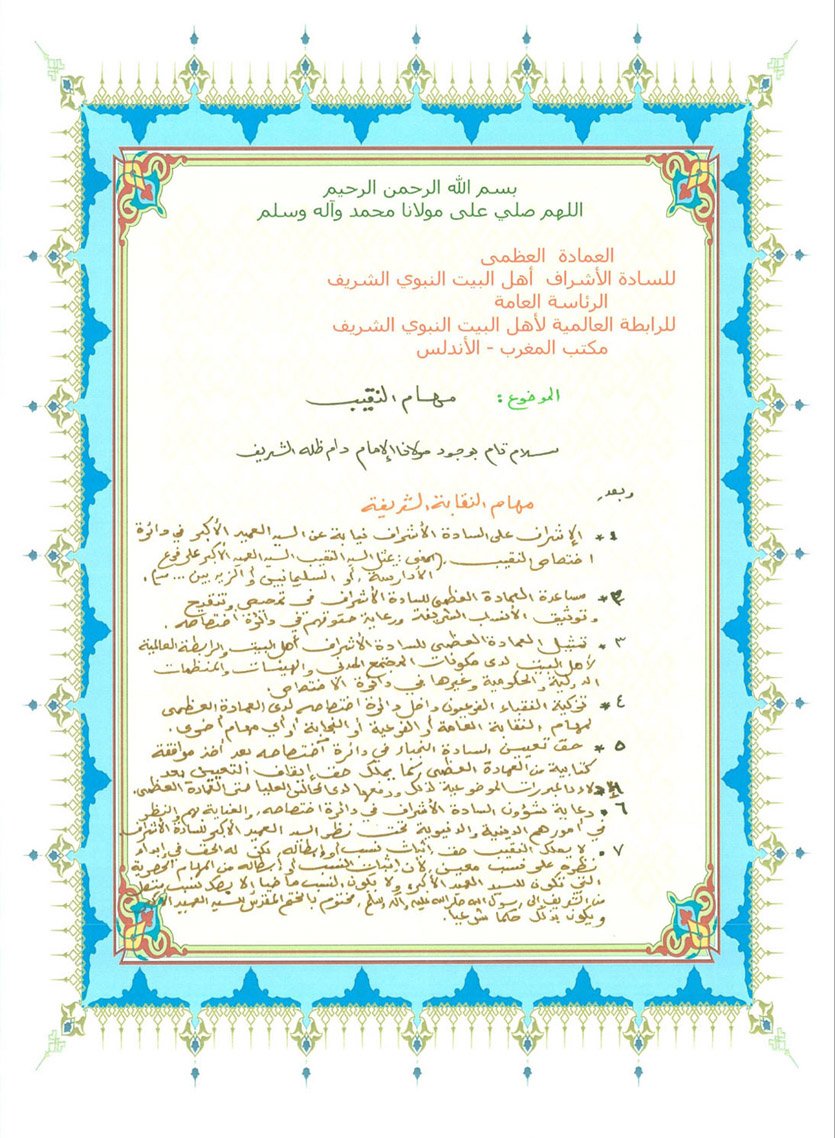 بسم الله الرحمن الرحيم
اللهم صلي على مولانا محمد وآله وسلم
العمادة العظمى
للسادة الأشراف أهل البيت النبوي الشريف
الرئاسة العامة
للرابطة العالمية لأهل البيت النبوي الشريف
مكتب المغرب - الأندلس
الموضوع : مهام النقيب
سلام تام بوجود مولانا الإمام دام ظله الشريف
وبعد،
مهام النقابة الشريفة
1* الاشراف على السادة الأشراف نيابة عن السيد العميد الأكبر في دائرة
اختصاص النقيب. (المعنى: يمثل السيد النقيب السيد العميد الأكبر على فرع
الأدارسة، أو السليمانيين أو الزيديين ...
2* مساعدة العمادة العظمى للسادة الأشراف في تمحيص وتنقيح
وتوثيق الأنساب الشريفة ورعاية حقوقهم في دائرة اختصاصه.
3* تمثيل العمادة العظمى للسادة الأشراف أهل البيت والرابطة العالمية
لأهل البيت لدى مكونات المجتمع المدني والهيئات والمنظمات
الدولية والحكومية وغيرها في دائرة الاختصاص
4* تزكية النقباء الفرعيون داخل دائرة اختصاصه لدى العمادة العظمى
لمهام النقابة العامة أو الفرعية أو النجابة أو أي مهام أخرى.
5* حق تعيين السادة النجباء في دائرة اختصاصه بعد أخذ موافقة
كتابية من العمادة العظمى كما يملك حق إيقاف التعيين بعد
المبررات الموضوعية لذلك ودفعها لدى المجالس العليا من العمادة العظمى.
6* رعاية شؤون السادة الأشراف في دائرة اختصاصه، والعناية بهم والنظر
في أمورهم الدينية والدنيوية تحت نظر السيد العميد الأكبر للسادة الأشراف
7* لا يملك النقيب حق إثبات نسب أو إبطاله، لكن له الحق في إبداء
نظره على نسب معين، لأن إثبات النسب أو إبطاله من المهام الحصرية
التي تكون للسيد العميد الأكبر، ولا يكون النسب ماضيا إلا بصك نسب
من الشريف إلى رسول الله صلى الله عليه وآله وسلم، مختوم بالختم المقدس للسيد العميد
ويكون بذلك حكما شرعيا.